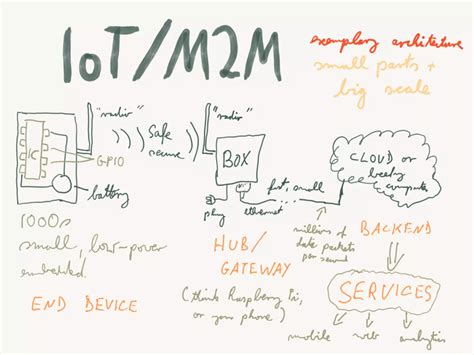 IoT/M2M
exemplary architecture
small parts +
big scale
"radio"
Safe
secure
"radio"
IC
GPIO
battery
BOX
CLOUD or
beefy
computer
plug
ethernet
fast, small
1000s
small, low-power
embedded.
END DEVICE
HUB/
GATEWAY
(think Raspberry Pi,
or your phone)
millions of
data packets
per second
BACKEND
SERVICES
mobile
web
analytics